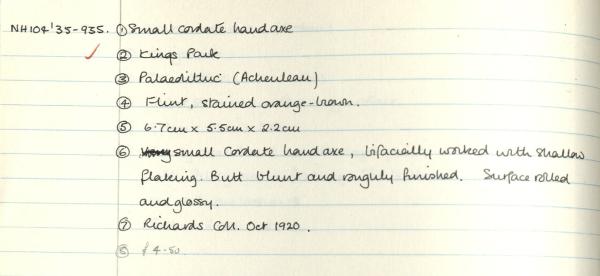 NH104'35-935. ① Small cordate handaxe
② Kings Park
③ Palaeolithic (Acheulean)
④ Flint, stained orange-brown.
⑤ 6.7cm x 5.5cm x 2.2cm
⑥ Small Cordate handaxe, bifacially worked with shallow
flaking. Butt blunt and roughly finished. Surface rolled
and glossy.
⑦ Richards Coll. Oct 1920.
⑧ £4-50